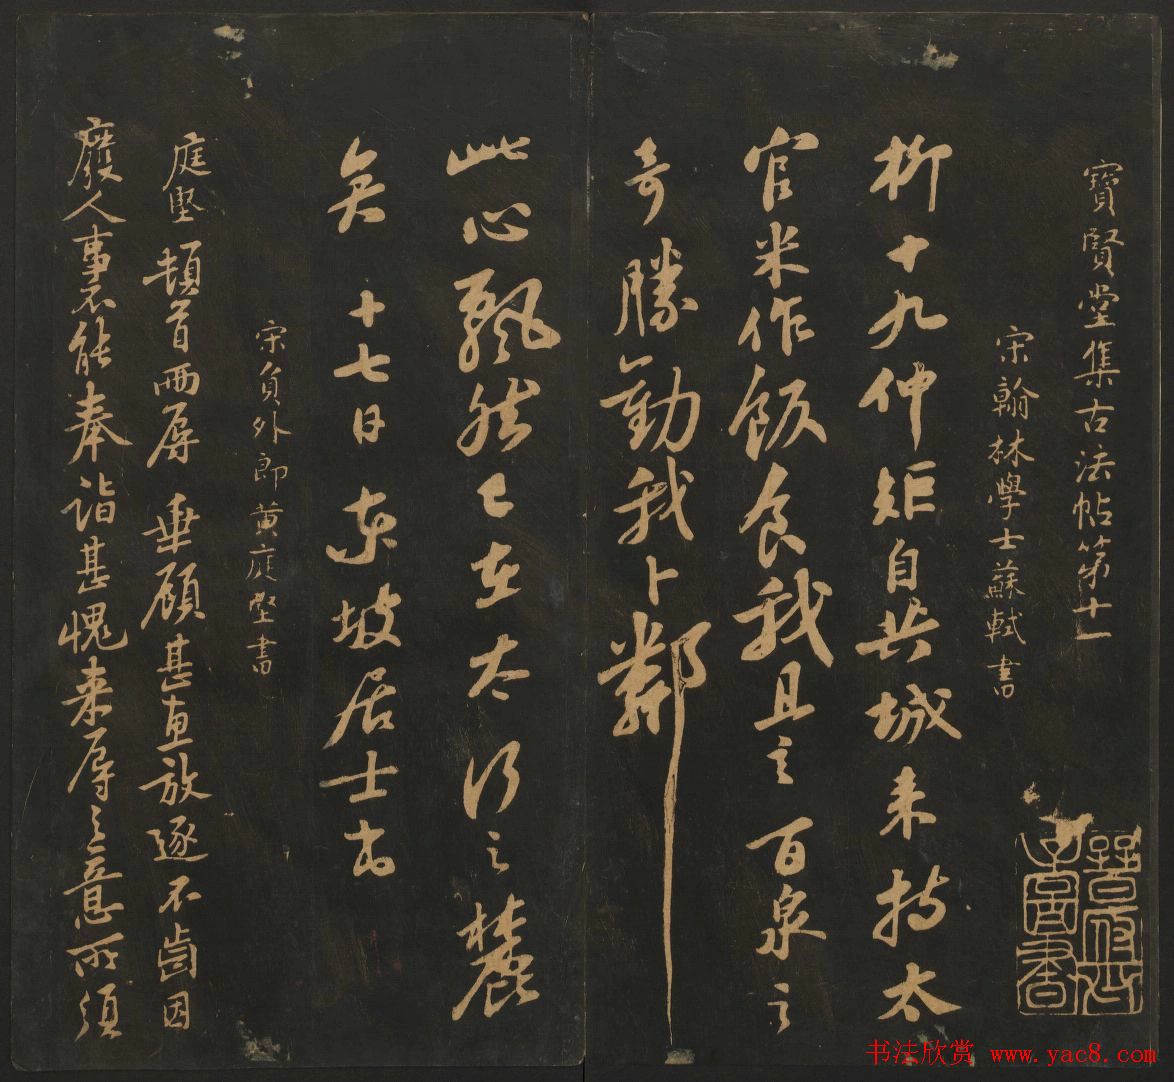 寶賢堂集古法帖第十一
宋翰林學士蘇軾書
柳十九仲矩自共城來持太
官米作飯食我且言百泉之
奇勝勸我卜鄰
此心飄然已在太行之麓
矣 十七日 東坡居士書
宋員外郎黃庭堅書
庭堅頓首兩辱 垂顧甚惠放逐不齒因
廢人事不能奉詣甚愧來辱之意所須
書法欣赏 www.yac8.com